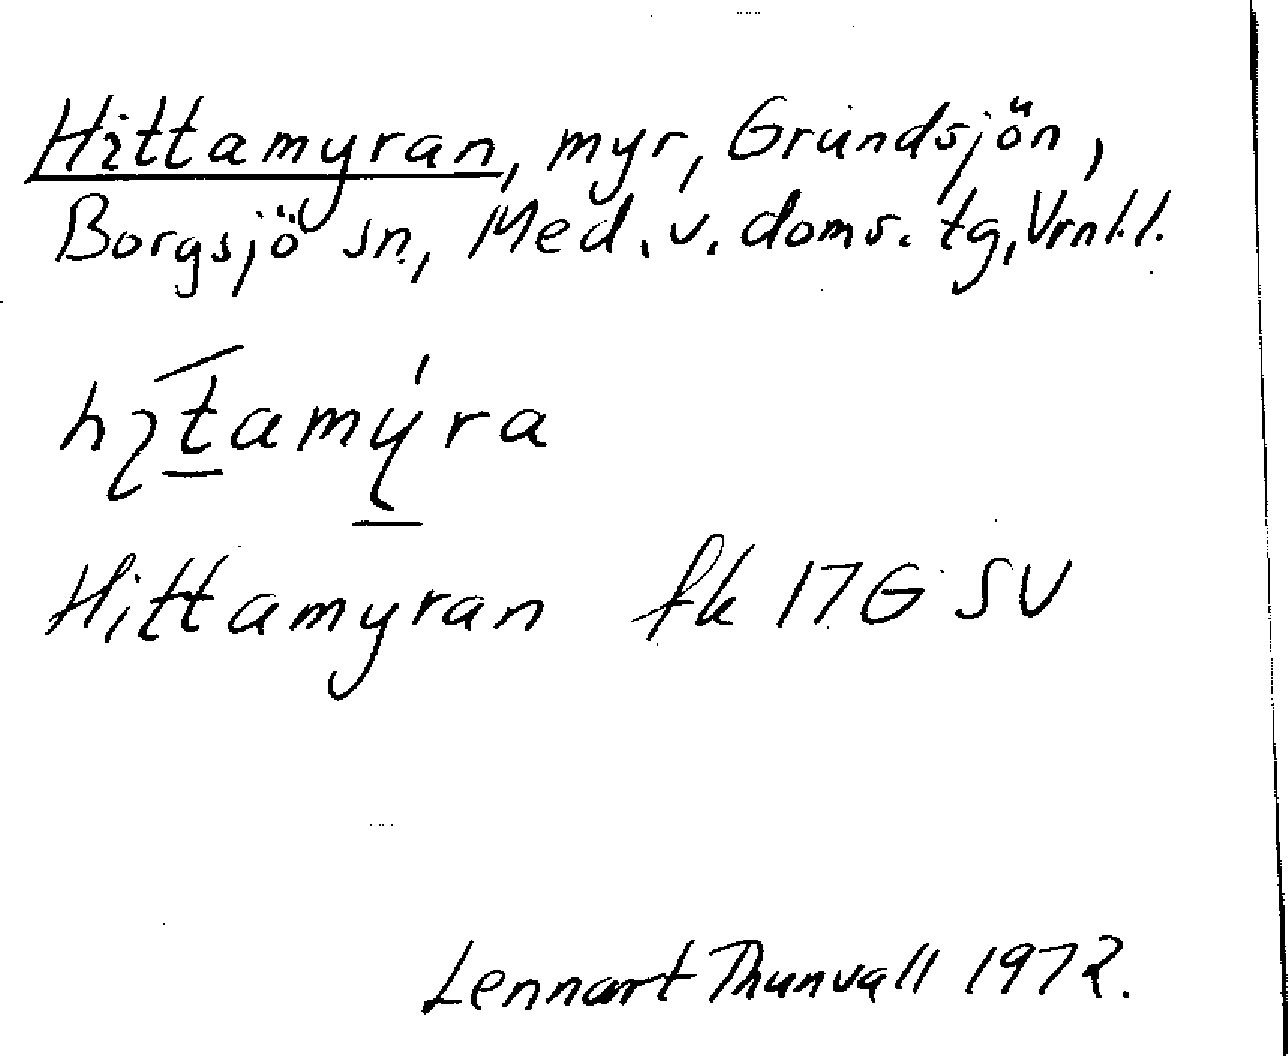 Hittamyran, myr, Grundsjön,
Borgsjö sn, Med. v. doms. tg, Vrnl.l.
Hittamyran fk 17G SV
Lennart Thunvall 1972.